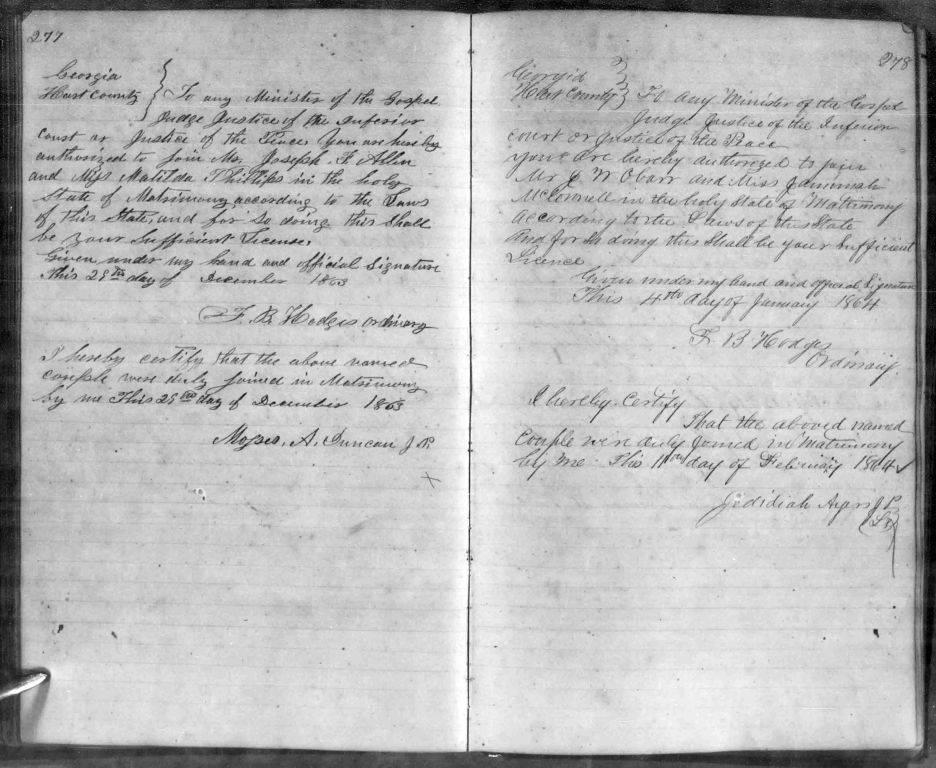 277
Georgia
Hart County } To any Minister of the Gospel
Judge Justice of the Inferior
court or Justice of the Peace You are hereby
authorized to join Mr. Joseph Allen
and Miss Matilda Phillips in the holy
State of Matrimony according to the Laws
of this State, and for So doing this Shall
be your Sufficient License.
Given under my hand and official Signature
This 29th day of December 1863
F. B. Hodges Ordinary
I hereby certify that the above named
couple were duly joined in Matrimony
by me This 29th day of December 1863
Moses A. Duncan J. P.
278
Georgia
Hart County } To any Minister of the Gospel
Judge Justice of the Inferior
court or Justice of the Peace
you Are hereby authorized to join
Mr J W Obarr and Miss
McConnell in the holy State of Matrimony
According to the Laws of this State
And for So doing this Shall be your Sufficient
Licence
Given under my hand and official Signature
This 4th day of January 1864
F. B Hodges
Ordinary.
I hereby Certify
That the aboved named
Couple were duly Joined in Matrimony
by me This 11th day of February 1864
Jedidiah Ayers J P